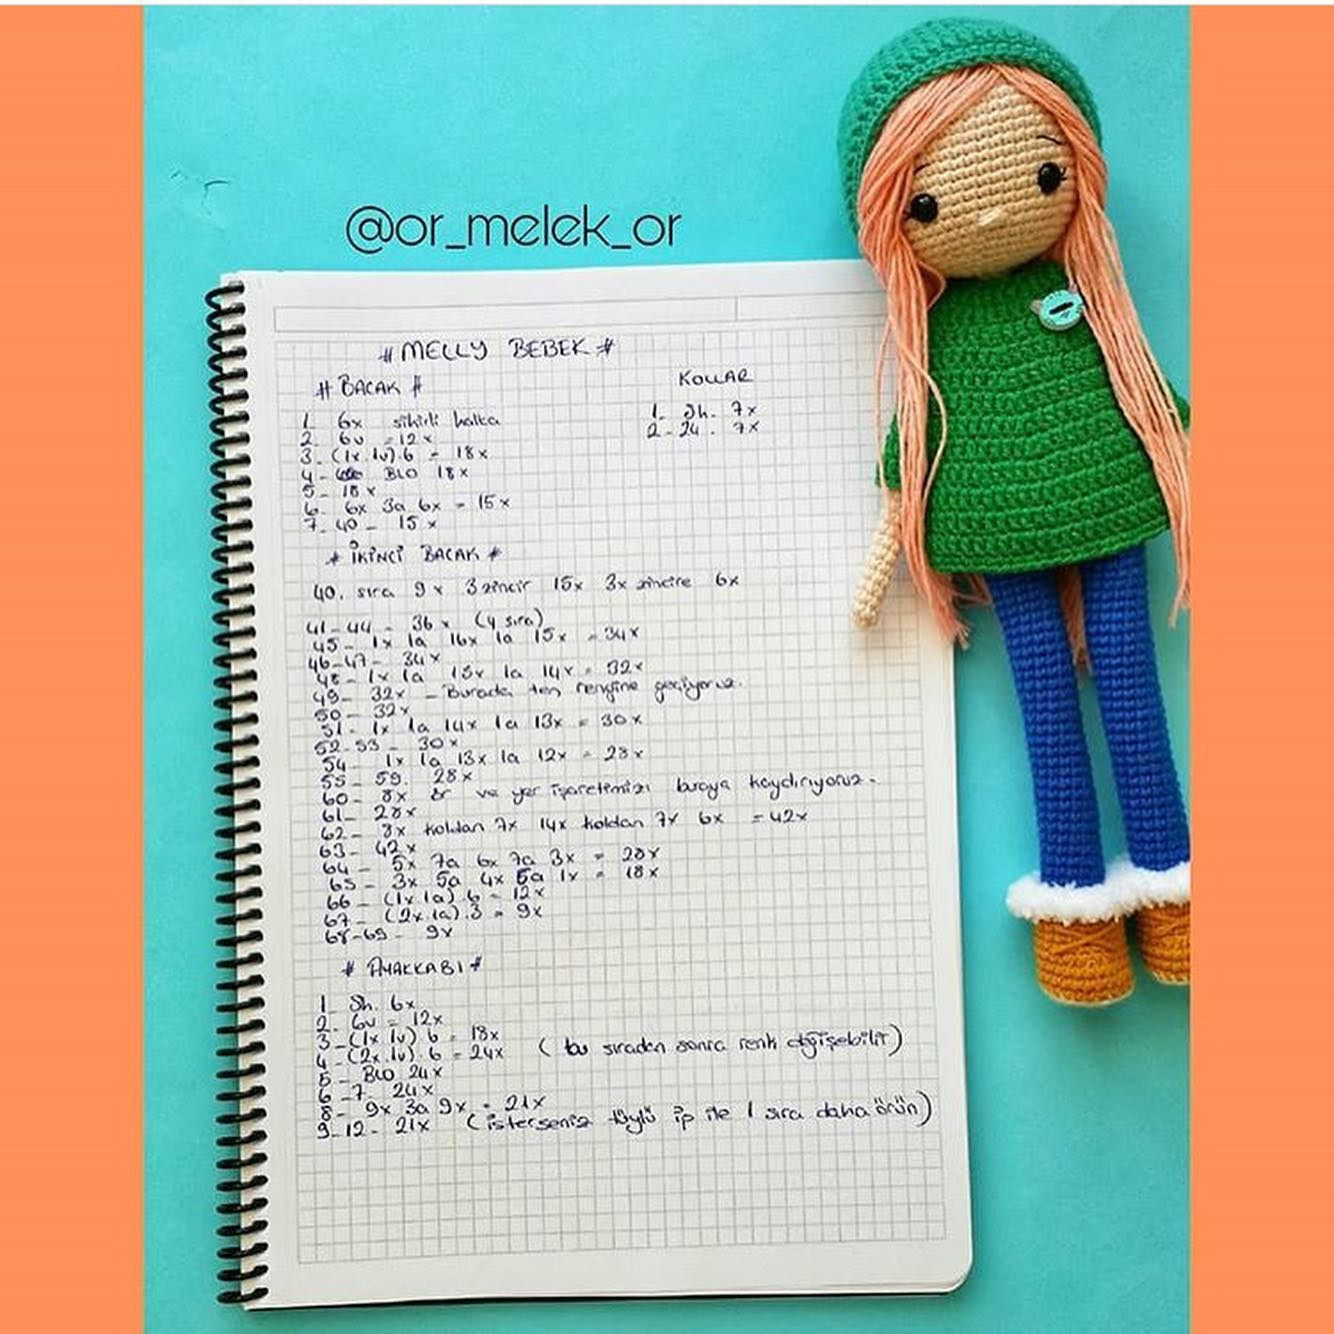 @or_melek_or
# MELLY BEBEK #
# BACAK #
1. 6x sihirli halka
2. 6v = 12x
3- (1x.1v).6 = 18x
4- BLO 18x
5- 18x
6. 6x 3a 6x = 15x
7-40- 15x
KOLLAR
1- Sh. 7x
2-24. 7x
# İKİNCİ BACAK #
40. sıra 9x 3 zincir 15x 3x zincire 6x
41-44- 36x (4 sıra)
45- 1x 1a 16x 1a 15x = 34x
46-47- 34x
48- 1x 1a 15x 1a 14x = 32x
49- 32x - Burada ten rengine geçiyoruz.
50- 32x
51- 1x 1a 14x 1a 13x = 30x
52-53- 30x
54- 1x 1a 13x 1a 12x = 28x
55-59. 28x
60- 8x ör ve yer işaretimizi buraya kaydırıyoruz.
61- 28x
62- 8x koldan 7x 14x koldan 7x 6x = 42x
63- 42x
64- 5x 7a 6x 7a 3x = 28x
65- 3x 5a 4x 5a 1x = 18x
66- (1x 1a).6 = 12x
67- (2x.1a).3 = 9x
68-69- 9x
# AYAKKABI #
1. Sh. 6x
2- 6v = 12x
3-(1x 1v) 6 = 18x
4-(2x.1v).6 = 24x (bu sıradan sonra renk değişebilir)
5- BLO 24x
6-7- 24x
8- 9x 3a 9x = 21x
9-12- 21x (isterseniz tüylü ip ile 1 sıra daha örün)